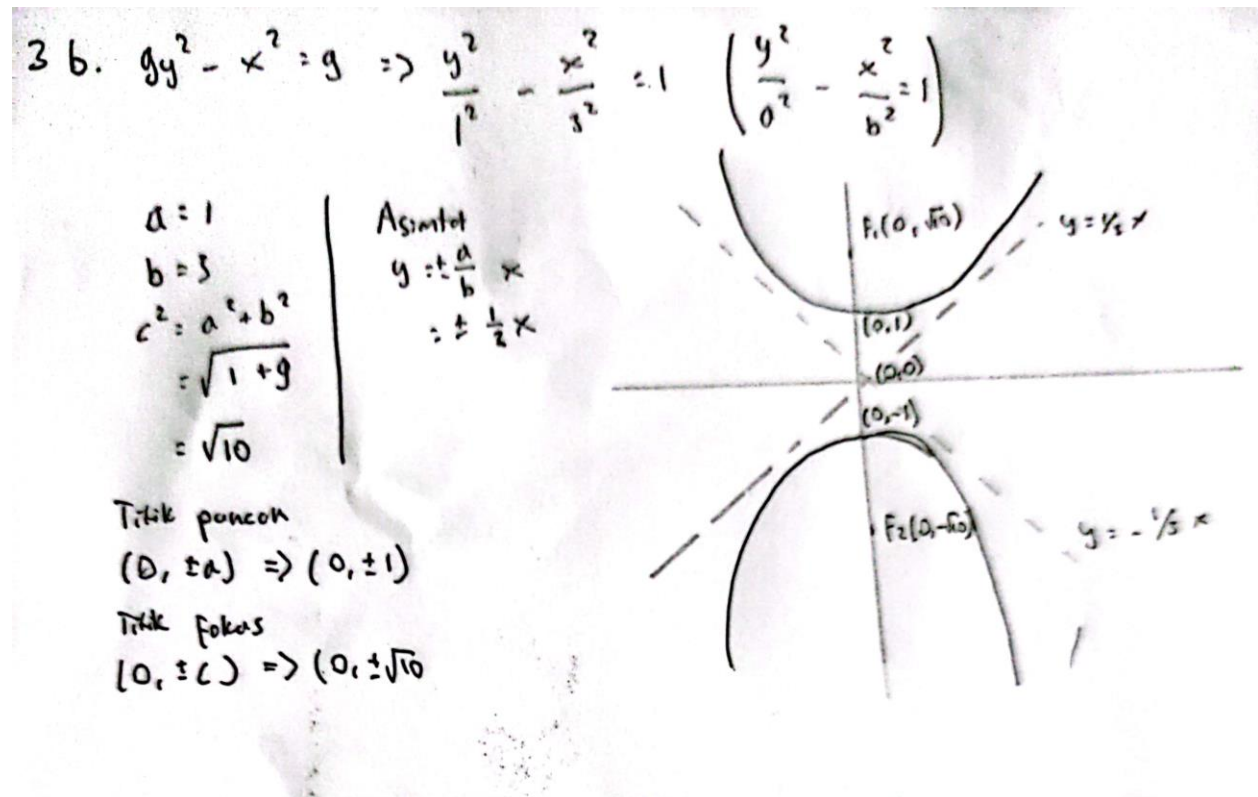 3 b. 9y² - x² = 9 => y²/1² - x²/3² = 1 (y²/a² - x²/b² = 1)
a = 1
b = 3
c² = a² + b²
= √1 + 9
= √10
Asimtot
y = ± a/b x
= ± 1/2 x
Titik puncak
(0, ±a) => (0, ±1)
Titik fokus
(0, ±c) => (0, ±√10
F₁(0, √10)
y = 1/3 x
(0,1)
(0,0)
(0,-1)
F₂(0,-√10)
y = - 1/3 x